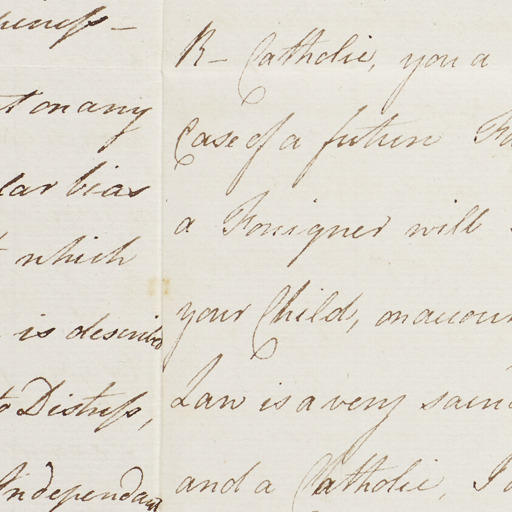 on any
bias
which
is described
to Distress,
Independant
R- Catholic, you a
Case of a future
a Foreigner will
your Child, on accoun
Law is a very sain
and a Catholic, I